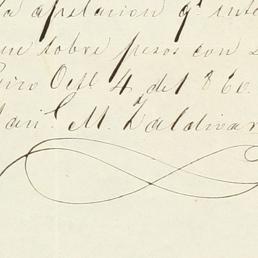 la apelacion qe. inte
que sobre pesos con
Octe. 4 del 860.
Man.l M. Zaldivar